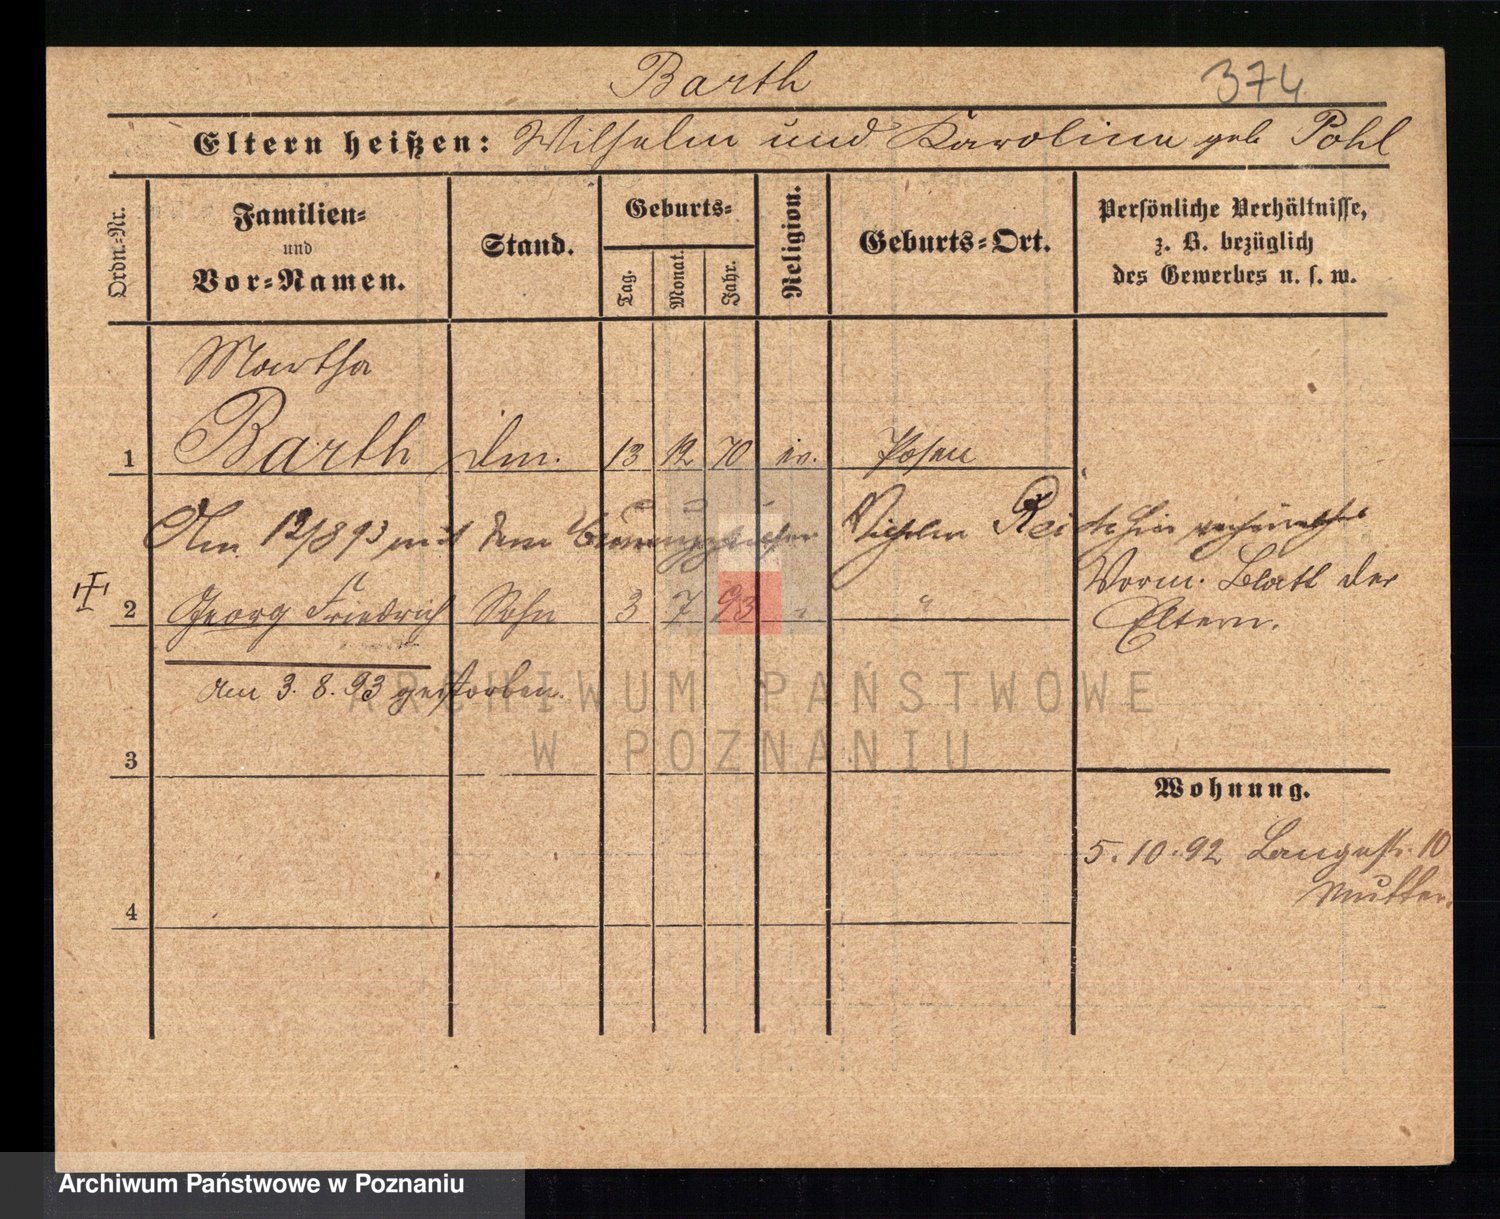 Barth
374
Eltern heißen: Wilhelm und Karoline geb Pohl
Ordn.=Nr.
Familien=
und
Vor=Namen.
Stand.
Geburts=
Tag.
Monat.
Jahr.
Religion.
Geburts=Ort.
Persönliche Verhältnisse,
z. B. bezüglich
des Gewerbes u. s. w.
Martha
1 Barth 13 12 70 ev. Posen
Am 12/8 93 mit dem Wilhelm
Vorm. Blatt der
Eltern.
2 Georg Friedrich Sohn 3 7 93 " "
am 3. 8. 93 gestorben.
ARCHIWUM PAŃSTWOWE
W POZNANIU
3
Wohnung.
5. 10. 92 Langestr. 10
Mutter.
4
Archiwum Państwowe w Poznaniu